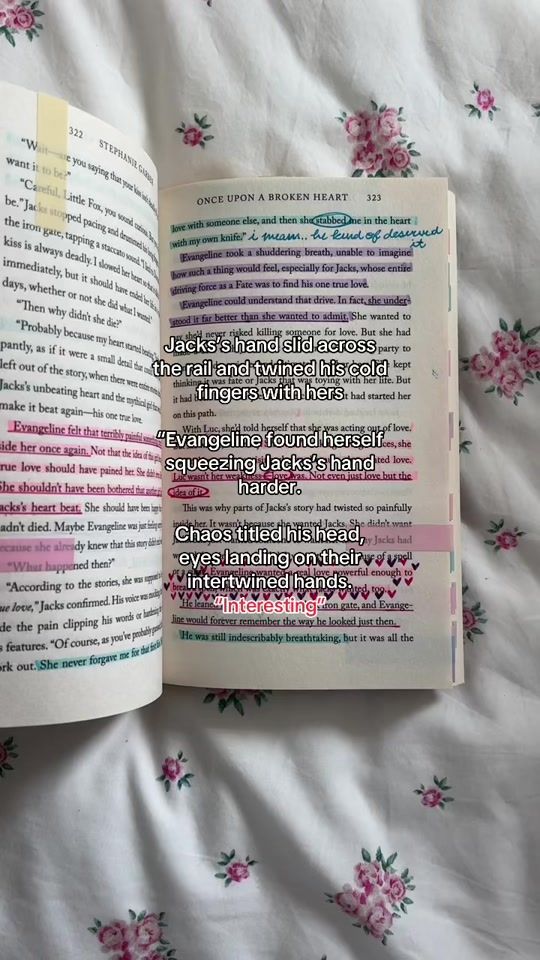 322 STEPHANIE
"Wait—are you saying that your
want it to be?"
"Careful, Little Fox, you sound
be." Jacks stopped pacing and drummed
the iron gate, tapping a staccato sound.
kiss is always deadly. I slowed her
immediately, but it should have ended
days, whether or not she did what I
"Then why didn't she die?"
"Probably because my heart started
pantly, as if it were a small detail that
left out of the story, when there were entire
Jacks's unbeating heart and the mythical girl
make it beat again—his one true love.
Evangeline felt that terribly painful
side her once again. Not that the idea of
true love should have pained her. She
She shouldn't have been bothered that another
Jacks's heart beat. She should have been
hadn't died. Maybe Evangeline was just feeling
because she already knew that this story didn't
"What happened then?"
"According to the stories, she was supposed
true love," Jacks confirmed. His voice was
de the pain clipping his words or hardening
s features. "Of course, as you've probably
ork out. She never forgave me for that first
ONCE UPON A BROKEN HEART 323
love with someone else, and then she stabbed me in the heart
with my own knife." i mean.. he kind of deserved
it
Evangeline took a shuddering breath, unable to imagine
how such a thing would feel, especially for Jacks, whose entire
driving force as a Fate was to find his one true love.
Evangeline could understand that drive. In fact, she under-
stood it far better than she wanted to admit. She wanted to
she'd never risked killing someone for love. But she had
party to
kept
thinking it was fate or Jacks that was toying with her life. But
it had started her
on this path.
With Luc, she'd told herself that she was acting out of love.
she
love.
Luc wasn't her weakness—love was. Not even just love but the
idea of it.
This was why parts of Jacks's story had twisted so painfully
inside her. It wasn't because she wanted Jacks. She didn't want
Jacks had
of a spell
Evangeline wanted a real love powerful enough to
too.
He leaned iron gate, and Evange-
line would forever remember the way he looked just then.
He was still indescribably breathtaking, but it was all the
Jacks's hand slid across
the rail and twined his cold
fingers with hers
"Evangeline found herself
squeezing Jacks's hand
harder.
Chaos titled his head,
eyes landing on their
intertwined hands.
"Interesting"